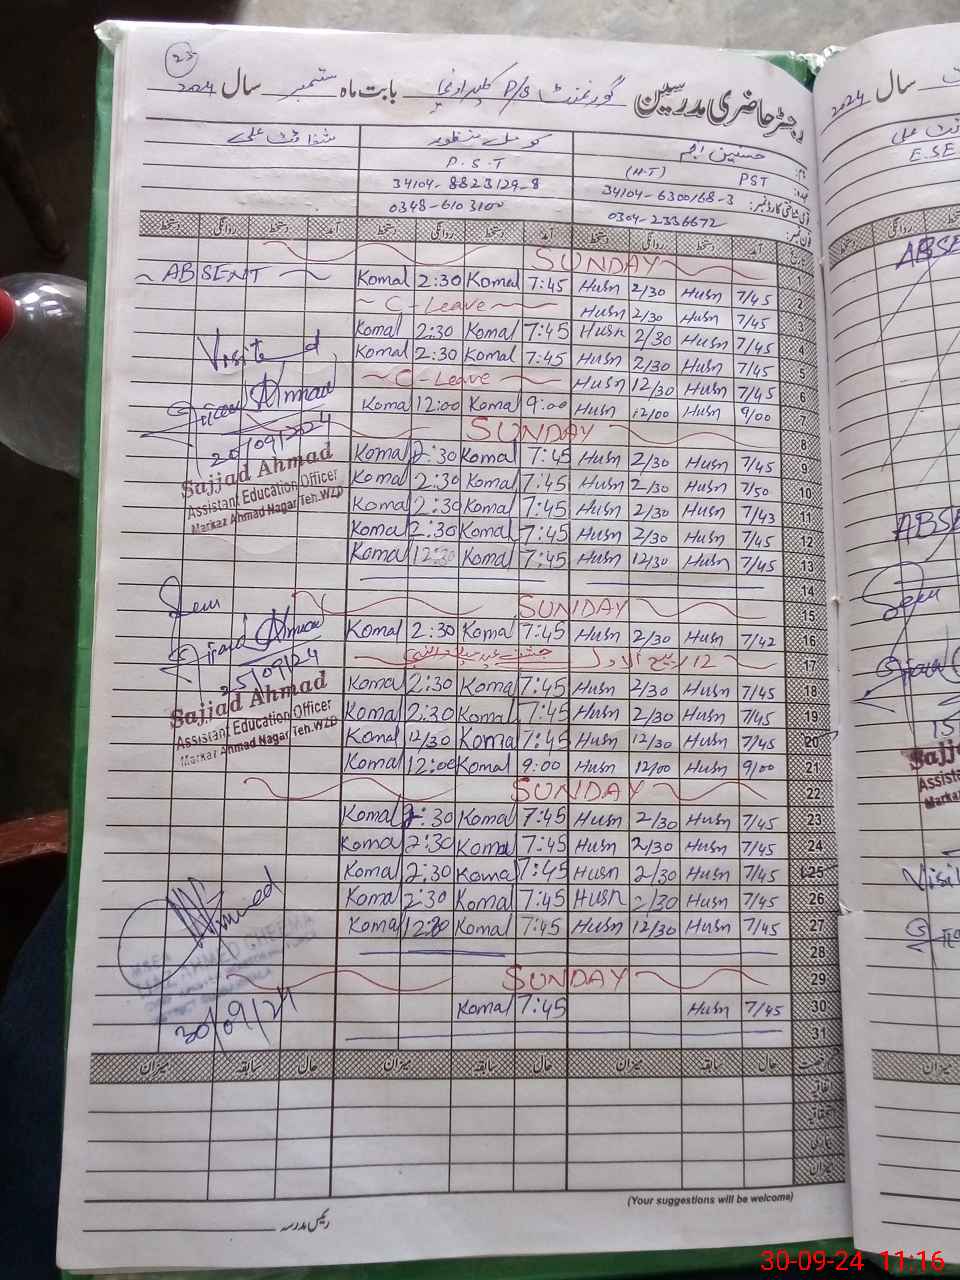 23
رجسٹر حاضری مدرسین گورنمنٹ P/S بابت ماہ ستمبر سال 2024
حسنین
(H-T) PST
34104-6300168-3
0304-2336672
کومل منظور
P.S.T
34104-8823129-8
0348-6103100
شفاقت علی
آمد دستخط روانگی دستخط آمد دستخط روانگی دستخط آمد دستخط روانگی دستخط
SUNDAY 1
ABSENT Komal 2:30 Komal 7:45 Husn 2/30 Husn 7/45 2
C-Leave Husn 2/30 Husn 7/45 3
Komal 2:30 Komal 7:45 Husn 2/30 Husn 7/45 4
Komal 2:30 Komal 7:45 Husn 2/30 Husn 7/45 5
C-Leave Husn 12/30 Husn 7/45 6
Komal 12:00 Komal 9:00 Husn 12/00 Husn 9/00 7
SUNDAY 8
Komal 2:30 Komal 7:45 Husn 2/30 Husn 7/45 9
Komal 2:30 Komal 7:45 Husn 2/30 Husn 7/50 10
Komal 2:30 Komal 7:45 Husn 2/30 Husn 7/43 11
Komal 2:30 Komal 7:45 Husn 2/30 Husn 7/45 12
Komal 12:30 Komal 7:45 Husn 12/30 Husn 7/45 13
14
SUNDAY 15
Komal 2:30 Komal 7:45 Husn 2/30 Husn 7/42 16
12 ربیع الاول جشن عید میلاد النبی 17
Komal 2:30 Komal 7:45 Husn 2/30 Husn 7/45 18
Komal 2:30 Komal 7:45 Husn 2/30 Husn 7/45 19
Komal 12/30 Komal 7:45 Husn 12/30 Husn 7/45 20
Komal 12:00 Komal 9:00 Husn 12/00 Husn 9/00 21
SUNDAY 22
Komal 2:30 Komal 7:45 Husn 2/30 Husn 7/45 23
Komal 2:30 Komal 7:45 Husn 2/30 Husn 7/45 24
Komal 2:30 Komal 7:45 Husn 2/30 Husn 7/45 25
Komal 2:30 Komal 7:45 Husn 2/30 Husn 7/45 26
Komal 12:30 Komal 7:45 Husn 12/30 Husn 7/45 27
28
SUNDAY 29
Komal 7:45 Husn 7/45 30
31
Visited
Sajjad Ahmad
20/09/2024
Sajjad Ahmad
Assistant Education Officer
Markaz Ahmad Nagar Teh.WZD
Seen
25/09/24
Sajjad Ahmad
Assistant Education Officer
Markaz Ahmad Nagar Teh.WZD
30/09/24
حال سابقہ میزان حال سابقہ میزان حال سابقہ میزان
میزان
(Your suggestions will be welcome)
رئیس مدرسہ
سال 2024
ABSE
ABSE
Seen
15
Assista
Marka
Visi
میزان
30-09-24 11:16